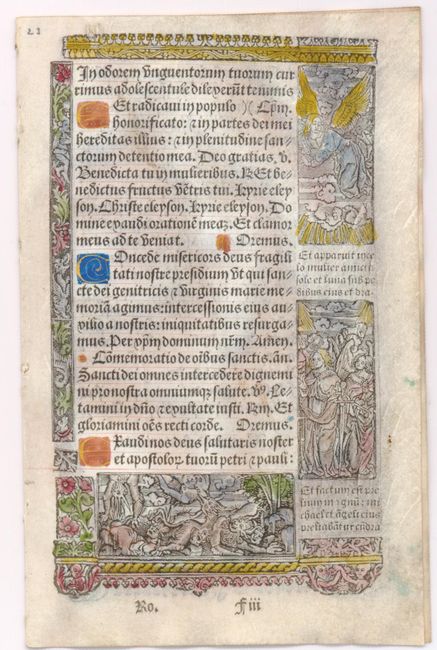 23
In odorem vnguentorum tuorum cur
rimus adolescentule dilexerũt te nimis
Et radicaui in populo )( Cpm̃.
honorificato: ⁊ in partes dei mei
hereditas illius: ⁊ in plenitudine san⸗
ctorum detentio mea. Deo gratias. v.
Benedicta tu in mulieribus. R. Et be⸗
nedictus fructus vẽtris tui. Kyrie eley
son. Christe eleyson. Kyrie eleyson. Do
mine exaudi orationẽ meaz. Et clamor
meus ad te veniat. Oremus.
Oncede misericors deus fragili
tati nostre presidium vt qui san⸗
cte dei genitricis ⁊ virginis marie me⸗
moriã agimus: intercessionis eius au⸗
xilio a nostris: iniquitatibus resurga⸗
mus. Per xpm̃ dominum nrm̃. Amen.
Cõmemoratio de oĩbus sanctis. añ.
Sancti dei omnes intercedere dignemi
ni pro nostra omniumq̃ salute. v. Le⸗
tamini in dño ⁊ exultate iusti. Rm. Et
gloriamini oẽs recti corde. Oremus.
Exaudi nos deus salutaris noster
et apostolorꝝ tuorũ petri ⁊ pauli:
Et apparuit in ce
lo mulier amicta
sole et luna sub pe
dibus eius et dra⸗
Et factum est pre
lium in
chael et ãgeli eius
preliabãtur cũ dra
Ro. F iii